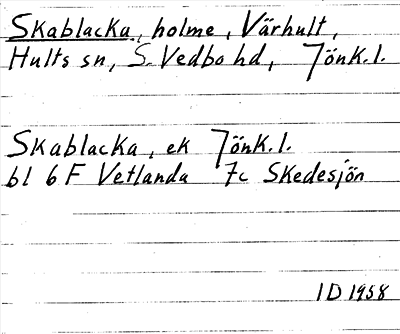 Skablacka, holme, Värhult,
Hults sn, S. Vedbo hd, Jönk. l.
Skablacka, ek Jönk. l.
bl 6 F Vetlanda 7c Skedesjön
ID 1958